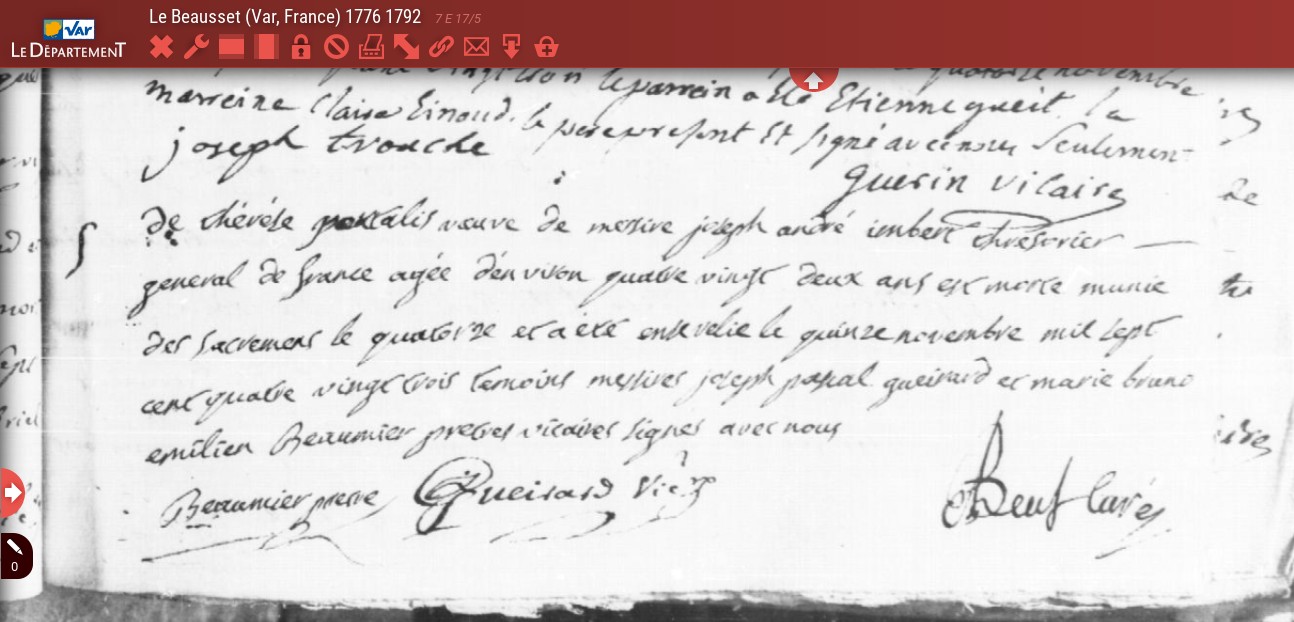 Le Beausset (Var, France) 1776 1792 7 E 17/5
VAR
LE DÉPARTEMENT
le parrein a été Etienne gueit. la
marreine Claire Einoud. le pere present Et signé avec nous Seulement
joseph trouche
guerin vicaire
De thérése portalis veuve de messire joseph andré imbert thresorier
general de france agée d'environ quatre vingt deux ans est morte munie
des sacremens le quatorze et a eté ensevelie le quinze novembre mil sept
cent quatre vingt trois temoins messires joseph pascal gueirard et marie bruno
emilien Beaumier pretres vicaires signés avec nous
Beaumier pretre Gueirard Vic.re
Beuf Curé
0